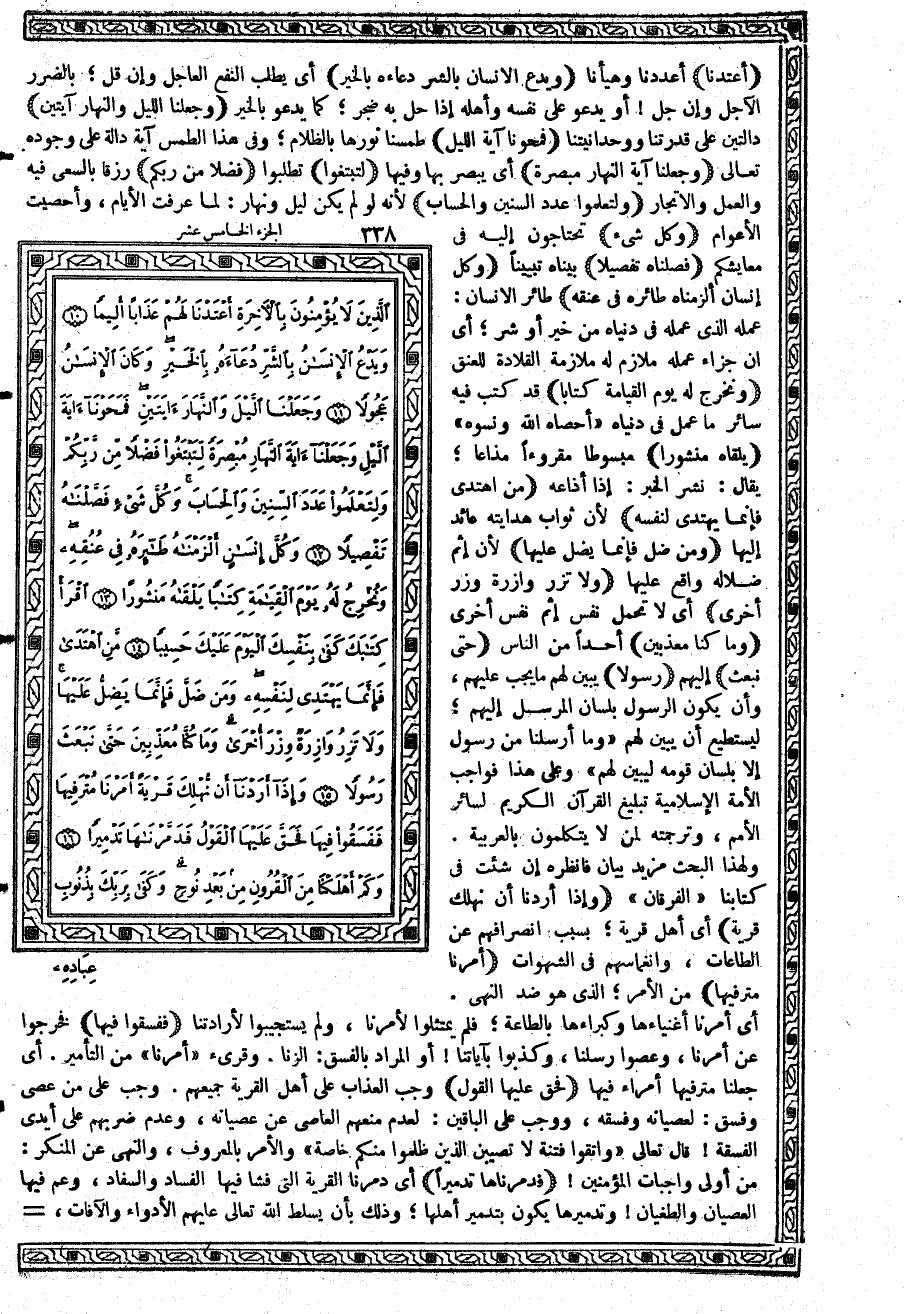 (أعتدنا) أعددنا وهيأنا (ويدع الانسان بالشر دعاءه بالخير) أى يطلب النفع العاجل وإن قل ؛ بالضرر
الآجل وإن جل ! أو يدعو على نفسه وأهله إذا حل به ضجر ؛ كما يدعو بالخير (وجعلنا الليل والنهار آيتين)
دالتين على قدرتنا ووحدانيتنا (فمحونا آية الليل) طمسنا نورها بالظلام ؛ وفى هذا الطمس آية دالة على وجوده
تعالى (وجعلنا آية النهار مبصرة) أى يبصر بها وفيها (لتبتغوا) تطلبوا (فضلا من ربكم) رزقا بالسعى فيه
والعمل والاتجار (ولتعلموا عدد السنين والحساب) لأنه لو لم يكن ليل ونهار : لما عرفت الأيام ، وأحصيت
الأعوام (وكل شىء) تحتاجون إليه فى
معايشكم (فصلناه تفصيلا) بيناه تبييناً (وكل
إنسان ألزمناه طائره فى عنقه) طائر الانسان :
عمله الذى عمله فى دنياه من خير أو شر ؛ أى
ان جزاء عمله ملازم له ملازمة القلادة للعنق
(ونخرج له يوم القيامة كتابا) قد كتب فيه
سائر ما عمل فى دنياه «أحصاه الله ونسوه»
(يلقاه منشورا) مبسوطا مقروءاً مذاعا ؛
يقال : نشر الخبر : إذا أذاعه (من اهتدى
فإنما يهتدى لنفسه) لأن ثواب هدايته عائد
إليها (ومن ضل فإنما يضل عليها) لأن إثم
ضلاله واقع عليها (ولا تزر وازرة وزر
أخرى) أى لا تحمل نفس إثم نفس أخرى
(وما كنا معذبين) أحداً من الناس (حتى
نبعث) إليهم (رسولا) يبين لهم مايجب عليهم ،
وأن يكون الرسول بلسان المرسل إليهم ؛
ليستطيع أن يبين لهم «وما أرسلنا من رسول
إلا بلسان قومه ليبين لهم» وعلى هذا فواجب
الأمة الإسلامية تبليغ القرآن الكريم لسائر
الأمم ، وترجمته لمن لا يتكلمون بالعربية .
ولهذا البحث مزيد بيان فانظره إن شئت فى
كتابنا « الفرقان » (وإذا أردنا أن نهلك
قرية) أى أهل قرية ؛ بسبب انصرافهم عن
الطاعات ، وانغماسهم فى الشهوات (أمرنا
مترفيها) من الأمر ؛ الذى هو ضد النهى .
٣٣٨ الجزء الخامس عشر
ٱلَّذِينَ لَا يُؤْمِنُونَ بِٱلْآخِرَةِ أَعْتَدْنَا لَهُمْ عَذَابًا أَلِيمًا ⑩
وَيَدْعُ ٱلْإِنسَٰنُ بِٱلشَّرِّ دُعَآءَهُۥ بِٱلْخَيْرِ ۖ وَكَانَ ٱلْإِنسَٰنُ
عَجُولًا ⑪ وَجَعَلْنَا ٱلَّيْلَ وَٱلنَّهَارَ ءَايَتَيْنِ ۖ فَمَحَوْنَآ ءَايَةَ
ٱلَّيْلِ وَجَعَلْنَآ ءَايَةَ ٱلنَّهَارِ مُبْصِرَةً لِّتَبْتَغُوا۟ فَضْلًا مِّن رَّبِّكُمْ
وَلِتَعْلَمُوا۟ عَدَدَ ٱلسِّنِينَ وَٱلْحِسَابَ ۚ وَكُلَّ شَىْءٍ فَصَّلْنَٰهُ
تَفْصِيلًا ⑫ وَكُلَّ إِنسَٰنٍ أَلْزَمْنَٰهُ طَٰٓئِرَهُۥ فِى عُنُقِهِۦ ۖ
وَنُخْرِجُ لَهُۥ يَوْمَ ٱلْقِيَٰمَةِ كِتَٰبًا يَلْقَىٰهُ مَنشُورًا ⑬ ٱقْرَأْ
كِتَٰبَكَ كَفَىٰ بِنَفْسِكَ ٱلْيَوْمَ عَلَيْكَ حَسِيبًا ⑭ مَّنِ ٱهْتَدَىٰ
فَإِنَّمَا يَهْتَدِى لِنَفْسِهِۦ ۖ وَمَن ضَلَّ فَإِنَّمَا يَضِلُّ عَلَيْهَا ۚ
وَلَا تَزِرُ وَازِرَةٌ وِزْرَ أُخْرَىٰ ۗ وَمَا كُنَّا مُعَذِّبِينَ حَتَّىٰ نَبْعَثَ
رَسُولًا ⑮ وَإِذَآ أَرَدْنَآ أَن نُّهْلِكَ قَرْيَةً أَمَرْنَا مُتْرَفِيهَا
فَفَسَقُوا۟ فِيهَا فَحَقَّ عَلَيْهَا ٱلْقَوْلُ فَدَمَّرْنَٰهَا تَدْمِيرًا ⑯
وَكَمْ أَهْلَكْنَا مِنَ ٱلْقُرُونِ مِنۢ بَعْدِ نُوحٍ ۗ وَكَفَىٰ بِرَبِّكَ بِذُنُوبِ
عِبَادِهِۦ
أى أمرنا أغنياءها وكبراءها بالطاعة ؛ فلم يمتثلوا لأمرنا ، ولم يستجيبوا لأرادتنا (ففسقوا فيها) نخرجوا
عن أمرنا ، وعصوا رسلنا ، وكذبوا بآياتنا ! أو المراد بالفسق: الزنا . وقرىء «أمرنا» من التأمير . أى
جعلنا مترفيها أمراء فيها (فحق عليها القول) وجب العذاب على أهل القرية جميعهم . وجب على من عصى
وفسق : لعصيانه وفسقه ، ووجب على الباقين : لعدم منعهم العاصى عن عصيانه ، وعدم ضربهم على أيدى
الفسقة ! قال تعالى «واتقوا فتنة لا تصيبن الذين ظلموا منكم خاصة» والأمر بالمعروف ، والنهى عن المنكر :
من أولى واجبات المؤمنين ! (فدمرناها تدميراً) أى دمرنا القرية التى فشا فيها الفساد والسفاد ، وعم فيها
العصيان والطغيان ! وتدميرها يكون بتدمير أهلها ؛ وذلك بأن يسلط الله تعالى عليهم الأدواء والآفات ، =